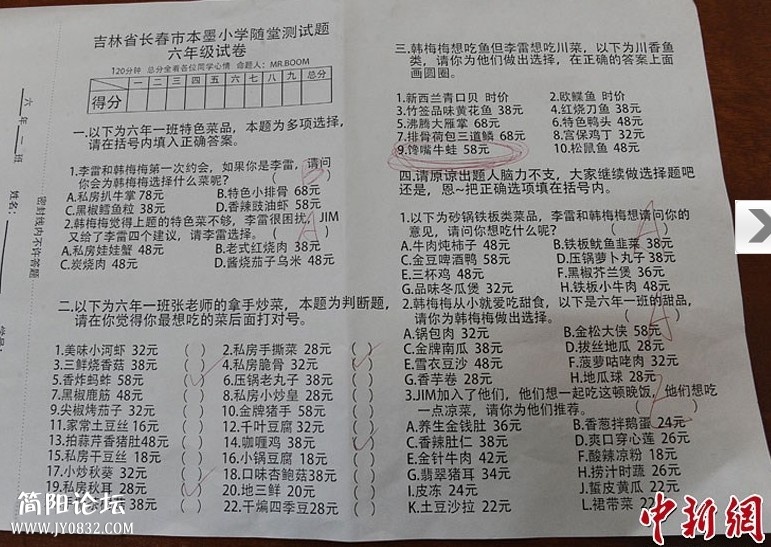 吉林省长春市本墨小学随堂测试题
六年级试卷
120分钟 总分全看各位同学心情 命题人：MR.BOOM
一 二 三 四 五 六 七 八 九 总分
得分
一.以下为六年一班特色菜品，本题为多项选择，
请在括号内填入正确答案。
1.李雷和韩梅梅第一次约会，如果你是李雷，请问
你会为韩梅梅选择什么菜呢？ ( B )
A.私房扒牛掌 78元 B.特色小排骨 68元
C.黑椒鳕鱼粒 38元 D.香辣豉油虾 58元
2.韩梅梅觉得上题的特色菜不够，李雷很困扰，JIM
又给了李雷四个建议，请李雷选择。 ( A )
A.私房娃娃蟹 48元 B.老式红烧肉 38元
C.炭烧肉 48元 D.酱烧茄子乌米 48元
二.以下为六年一班张老师的拿手炒菜，本题为判断题，
请在你觉得你最想吃的菜后面打对号。
1.美味小河虾 32元 ( ) 2.私房手撕菜 28元 ( )
3.三鲜烧香菇 38元 ( ) 4.私房脆骨 32元 ( )
5.香炸蚂蚱 58元 ( ) 6.压锅老丸子 38元 ( )
7.黑椒鹿筋 48元 ( ) 8.私房小炒皇 28元 ( )
9.尖椒烤茄子 32元 ( ) 10.金牌猪手 58元 ( )
11.家常土豆丝 16元 ( ) 12.千叶豆腐 32元 ( )
13.拍蒜芹香猪肚48元 ( ) 14.咖喱鸡 38元 ( )
15.私房干豆丝 18元 ( ) 16.小锅豆腐 18元 ( )
17.小炒秋葵 32元 ( ) 18.口味杏鲍菇38元 ( )
19.私房秋耳 28元 ( ) 20.地三鲜 20元 ( )
22.干煸四季豆28元 ( )
三.韩梅梅想吃鱼但李雷想吃川菜，以下为川香鱼
类，请你为他们做出选择，在正确的答案上面
画圆圈。
1.新西兰青口贝 时价 2.欧鲽鱼 时价
3.竹签品味黄花鱼 38元 4.红烧刀鱼 38元
5.沸腾大雁掌 68元 6.特色鸭头 48元
7.排骨荷包三道鳞 68元 8.宫保鸡丁 32元
9.馋嘴牛蛙 58元 10.松鼠鱼 48元
四.请原谅出题人脑力不支，大家继续做选择题吧
还是，恩~把正确选项填在括号内。
1.以下为砂锅铁板类菜品，李雷和韩梅梅想请问你的
意见，请问你想吃什么呢？ ( A )
A.牛肉炖柿子 48元 B.铁板鱿鱼韭菜 38元
C.金豆啤酒鸭 58元 D.压锅萝卜丸子 38元
E.三杯鸡 48元 F.黑椒芥兰煲 36元
G.品味冬瓜煲 32元 H.铁板小牛肉 48元
2.韩梅梅从小就爱吃甜食，以下是六年一班的甜品，
请你为韩梅梅做出选择。 ( A )
A.锅包肉 32元 B.金松大侠 58元
C.金牌南瓜 38元 D.拔丝地瓜 28元
E.雪衣豆沙 48元 F.菠萝咕咾肉 32元
G.香芋卷 28元 H.地瓜球 28元
3.JIM加入了他们，他们想一起吃这顿晚饭，他们想吃
一点凉菜，请你为他们推荐。
A.养生金钱肚 36元 B.香葱拌鹅蛋 24元
C.香辣肚仁 38元 D.爽口穿心莲 26元
E.金针牛肉 42元 F.酸辣凉粉 18元
G.翡翠猪耳 34元 H.捞汁时蔬 26元
I.皮冻 24元 J.蜇皮黄瓜 22元
K.土豆沙拉 22元 L.裙带菜 22元
六 年 一 班
姓名：
密封线内不许答题
简阳论坛
www.JY0832.com
中新網